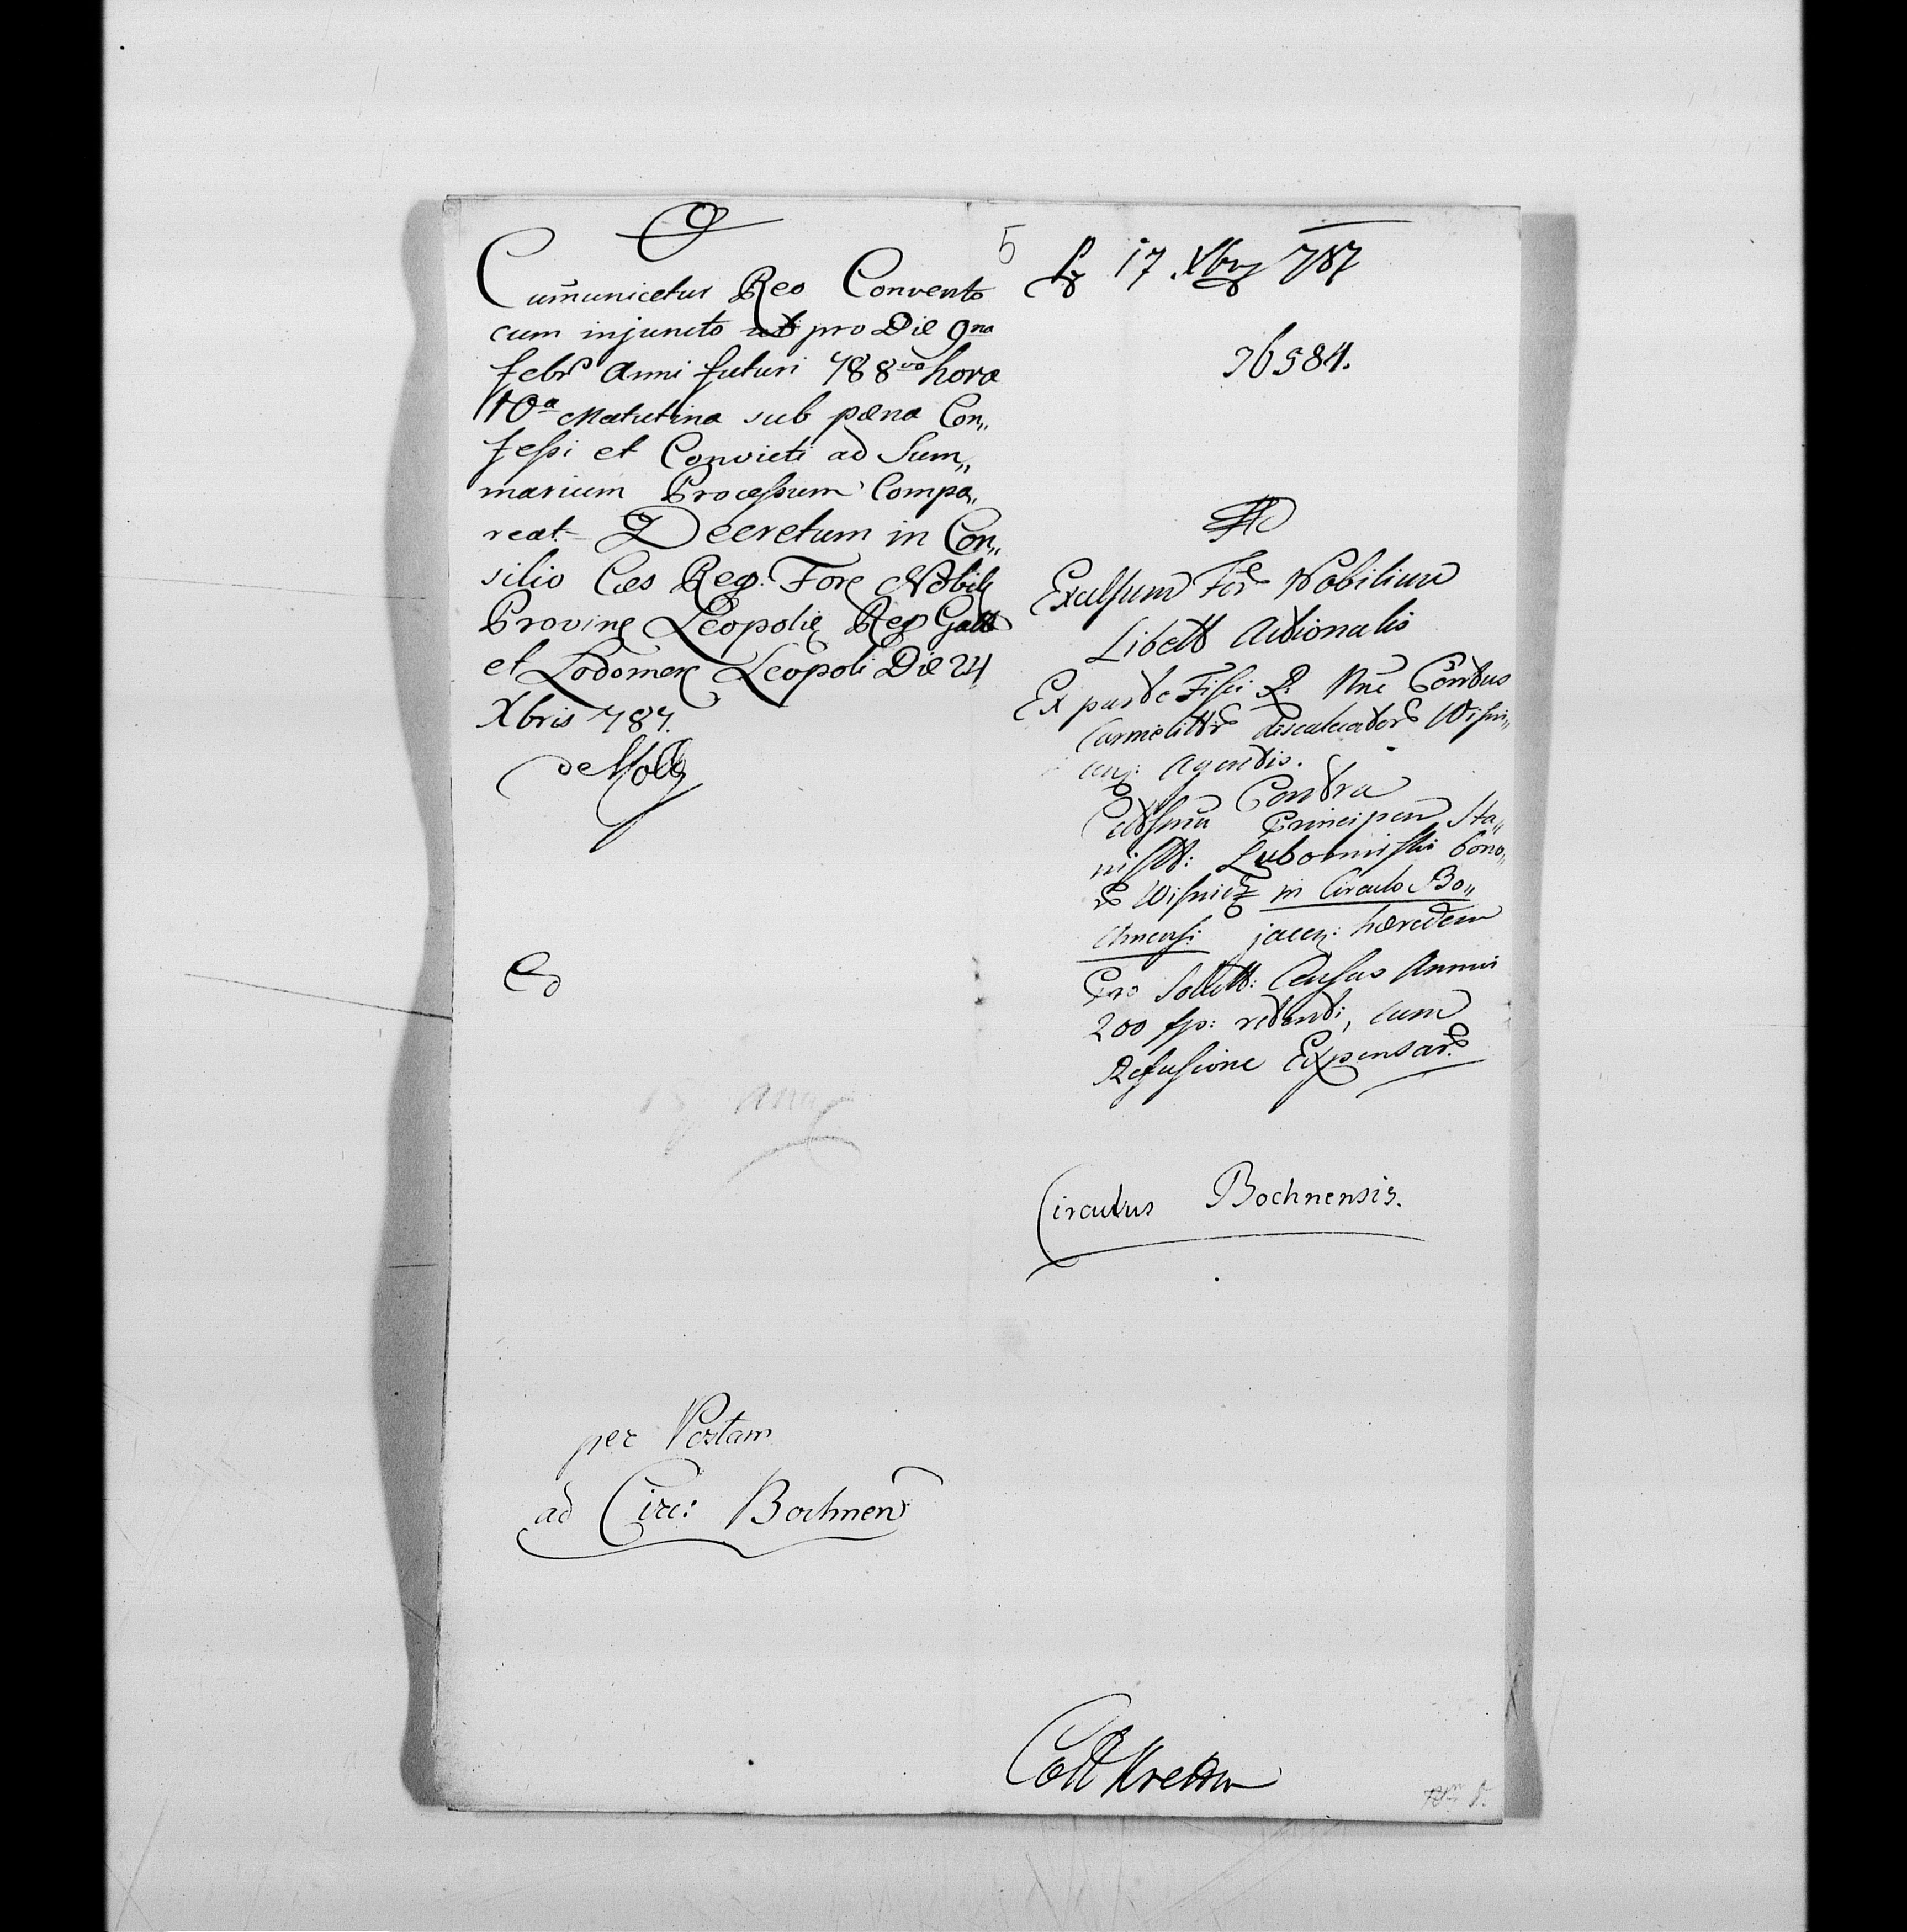 Cum̃unicetur Reo Convento
cum injuncto ut pro Die 9na
febr Anni futuri 788vo hora
10a Matutina sub pæna Con„
feſsi et Convicti ad Sum„
marium Proceſsum Compa„
reat Decretum in Con„
silio Cæs Reg. Fori Nobil
Provinc Leopoli Reg Gall
et Lodomer Leopoli Die 24
Xbris 787.
Ed
per Postam
ad Circ: Bochnen
5
17 Xbr 787
36584.
Ad
Excelsum For Nobilium
Libell Actionalis
Ex parte Fisci R. Nne Convtus
Carmelittr discalceator Wisni„
cen: Agentis.
Contra
Celsſmu Principem Sta„
nisll: Lubomirski bono„
r Wisnicz in Circulo Bo„
chnensi jacen: hæredem
Pro Solutt: Census Annui
200 fp: , cum
Refusione Expensar.
Circulus Bochnensis.